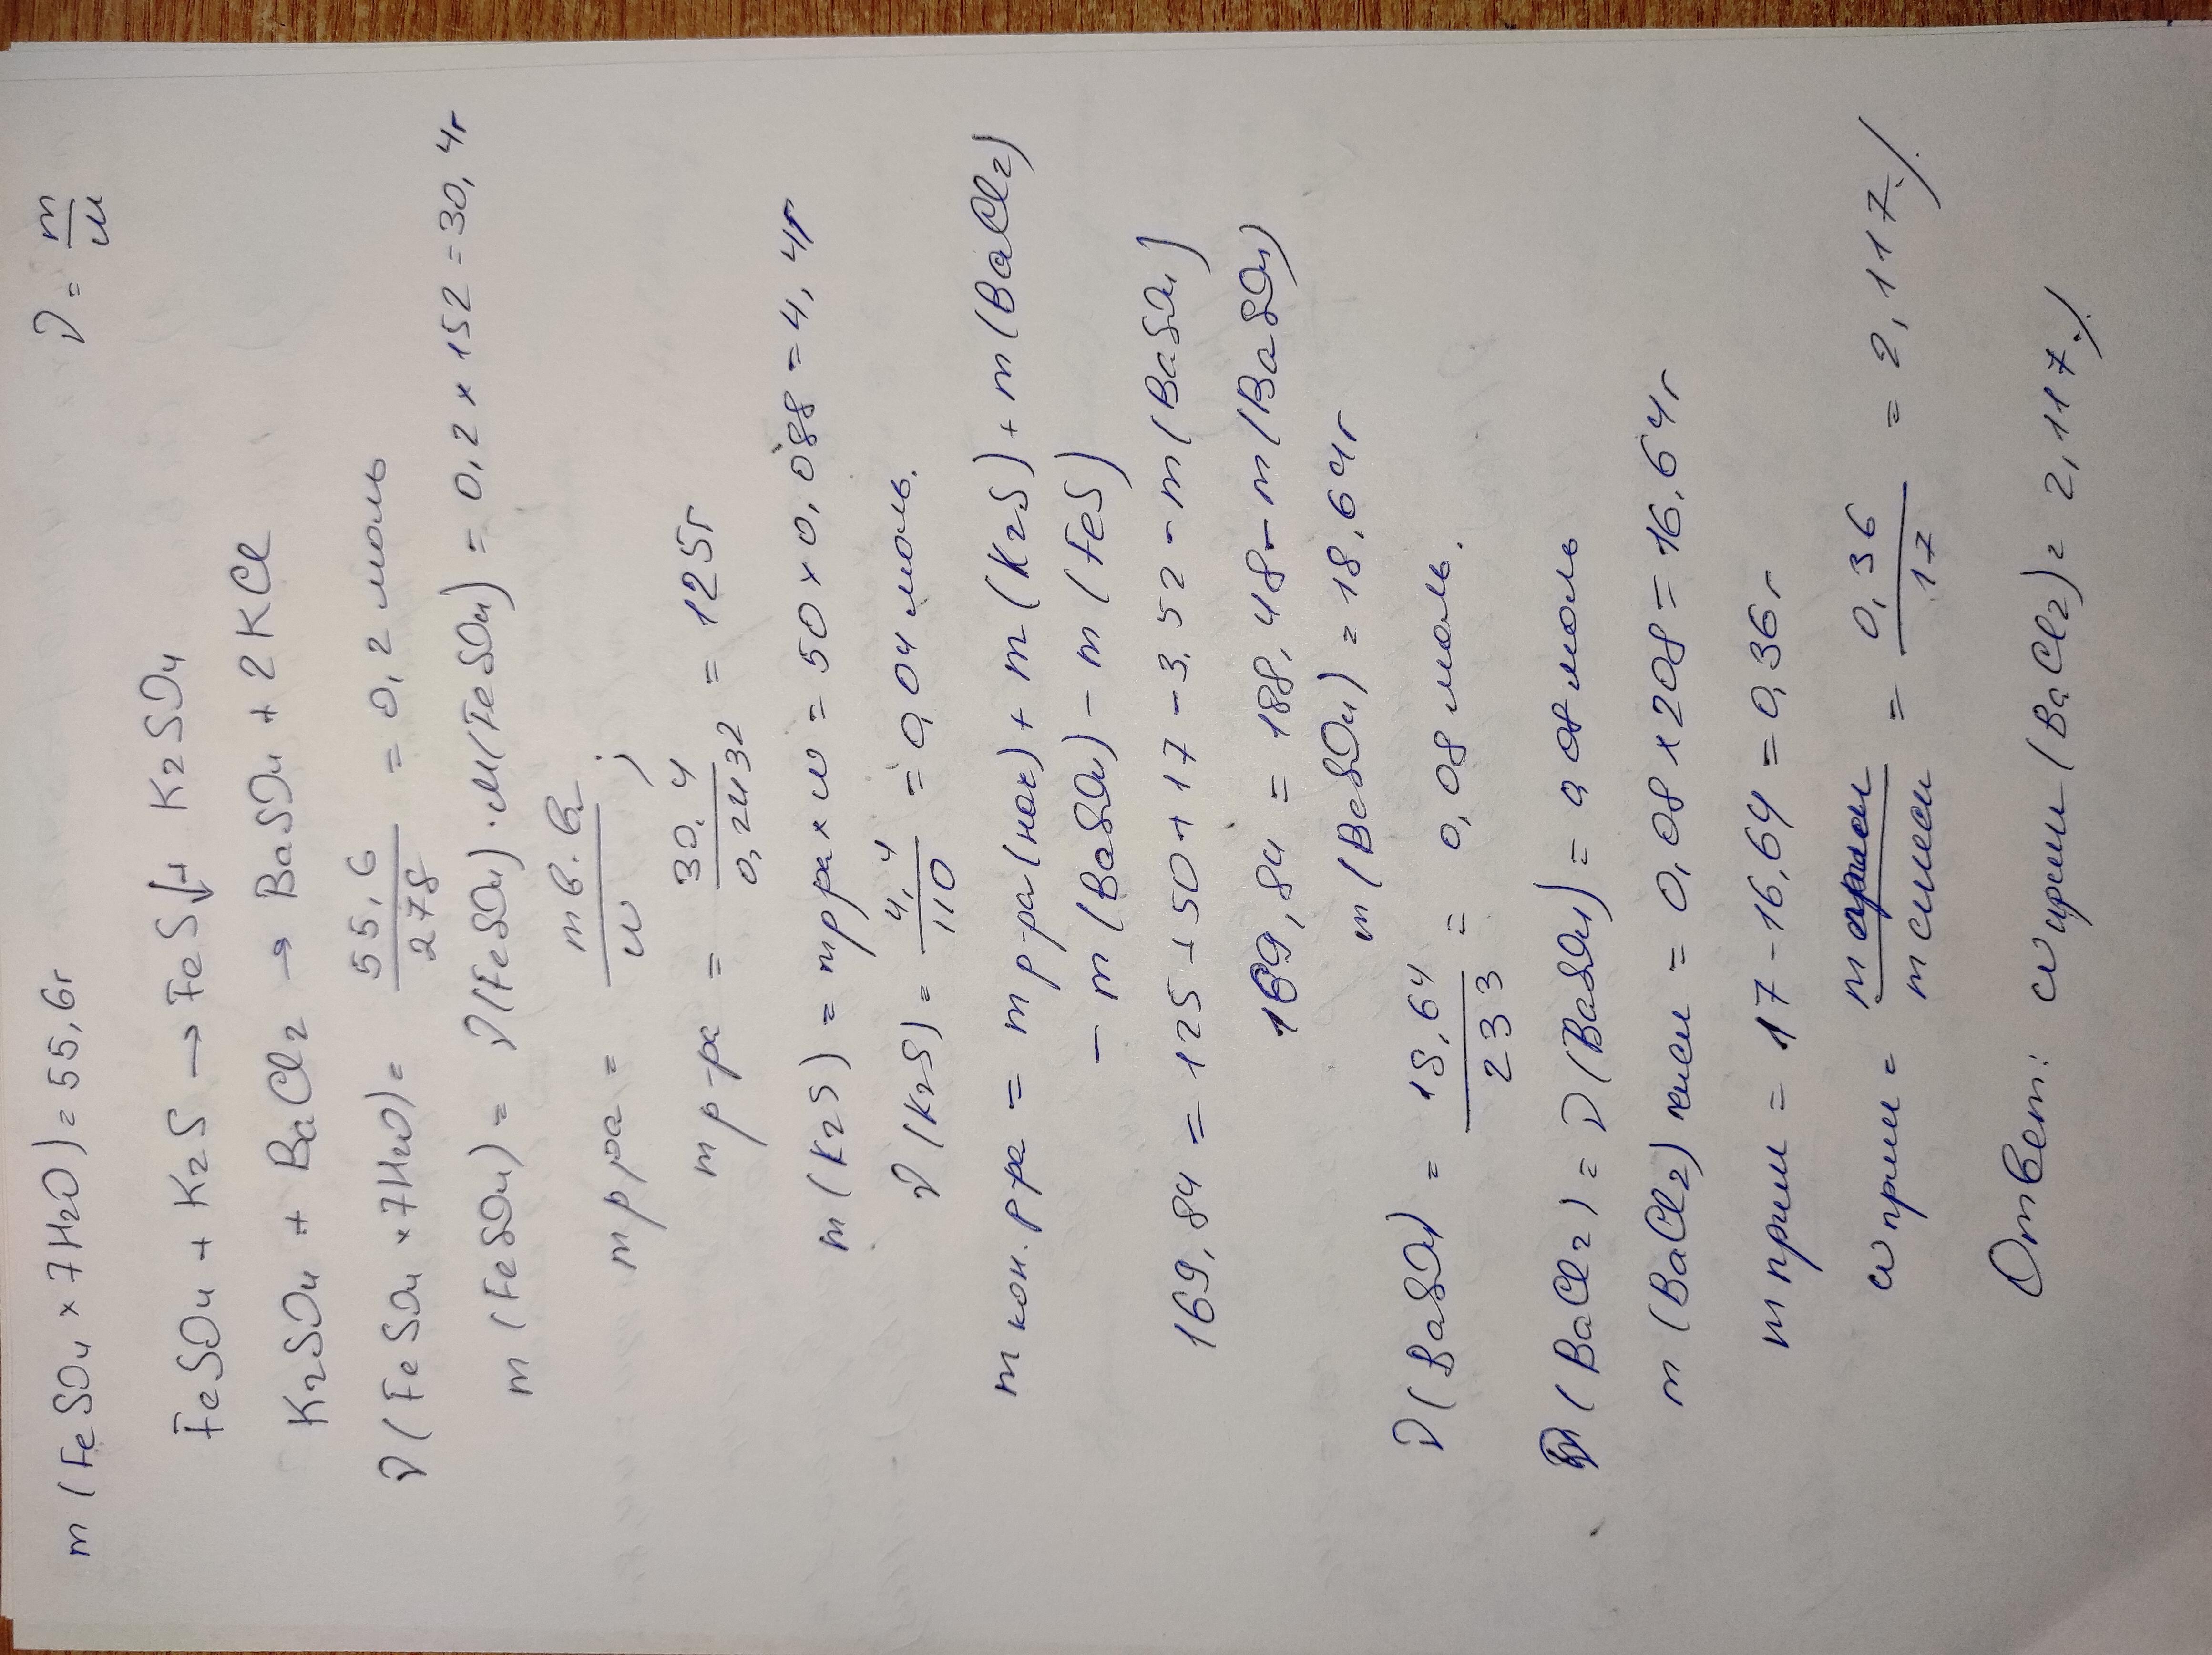 m (FeSO4 × 7H2O) = 55,6г    ν = m/M
FeSO4 + K2S → FeS↓ + K2SO4
K2SO4 + BaCl2 → BaSO4 + 2KCl
ν (FeSO4 × 7H2O) = 55,6/278 = 0,2 моль
m (FeSO4) = ν(FeSO4) · M(FeSO4) = 0,2 × 152 = 30,4г
m р ра = m в.ва/w ;
m р-ра = 30,4/0,2432 = 125г
m (K2S) = m р ра × w = 50 × 0,088 = 4,4г
ν (K2S) = 4,4/110 = 0,04 моль.
m кон. р ра = m р-ра(нас) + m (K2S) + m (BaCl2)
- m (BaSO4) - m (FeS)
169,84 = 125 + 50 + 17 - 3,52 - m (BaSO4)
169,84 = 188,48 - m (BaSO4)
m (BaSO4) = 18,64г
ν (BaSO4) = 18,64/233 = 0,08 моль.
ν (BaCl2) = ν (BaSO4) = 0,08 моль
m (BaCl2) = 0,08 × 208 = 16,64г
m прим = 17 - 16,64 = 0,36г
w прим = m прим/m смеси = 0,36/17 = 2,117%
Ответ: w прим (BaCl2) = 2,117%